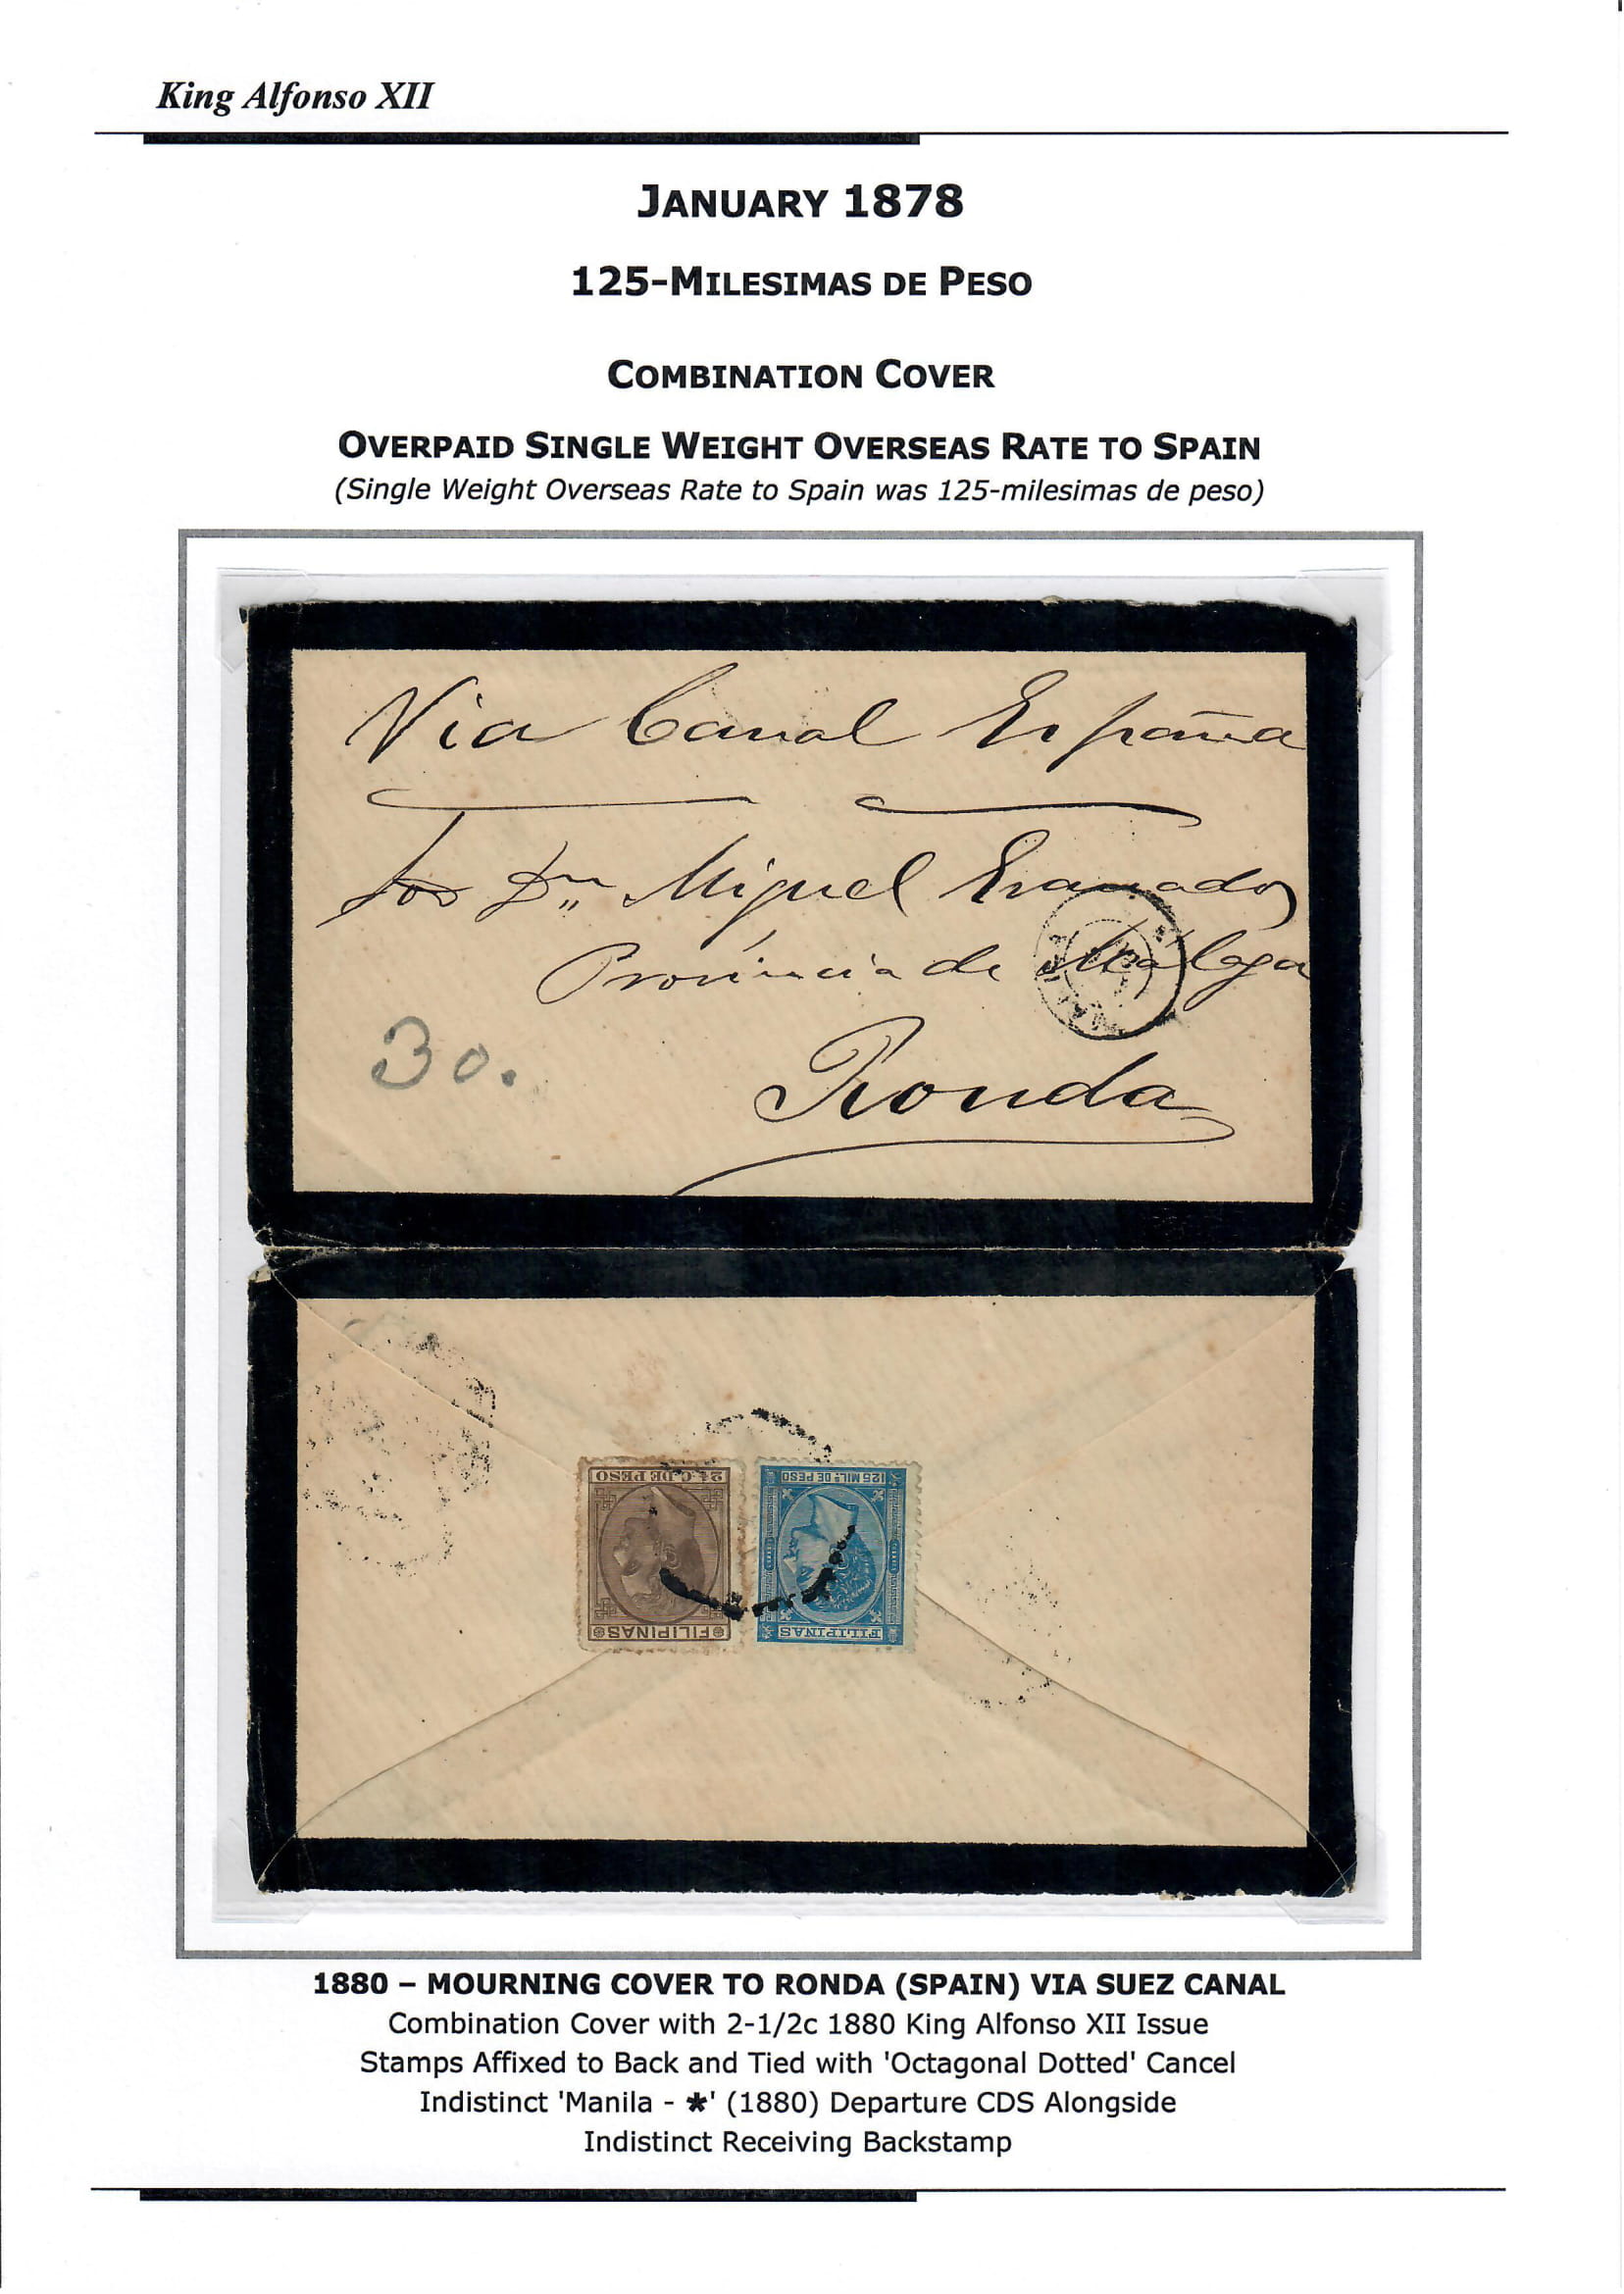 King Alfonso XII
JANUARY 1878
125-MILESIMAS DE PESO
COMBINATION COVER
OVERPAID SINGLE WEIGHT OVERSEAS RATE TO SPAIN
(Single Weight Overseas Rate to Spain was 125-milesimas de peso)
Via Canal España
Sor Dn Miguel Granados
Provincia de Málaga
30.
Ronda
2 4/8 C. DE PESO
125 MILS DE PESO
FILIPINAS
FILIPINAS
1880 – MOURNING COVER TO RONDA (SPAIN) VIA SUEZ CANAL
Combination Cover with 2-1/2c 1880 King Alfonso XII Issue
Stamps Affixed to Back and Tied with 'Octagonal Dotted' Cancel
Indistinct 'Manila - *' (1880) Departure CDS Alongside
Indistinct Receiving Backstamp